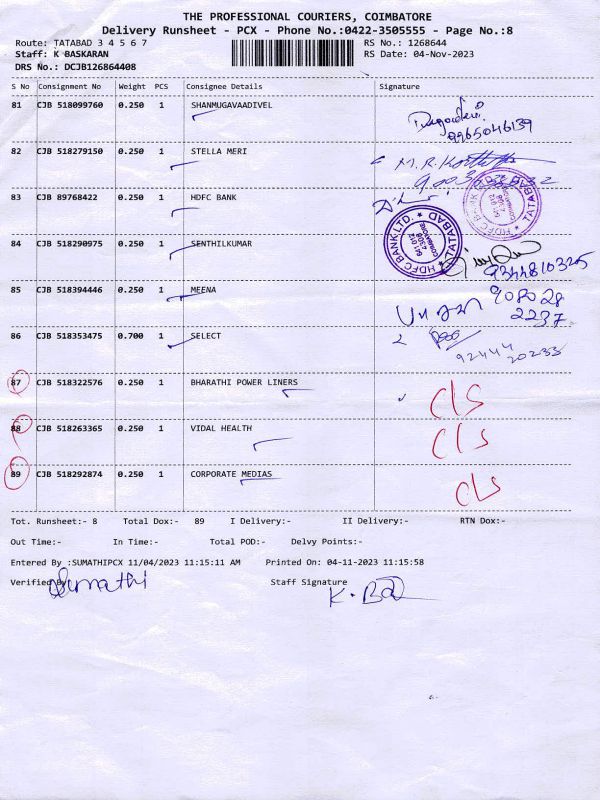 THE PROFESSIONAL COURIERS, COIMBATORE
Delivery Runsheet - PCX - Phone No.:0422-3505555 - Page No.:8
Route: TATABAD 3 4 5 6 7 RS No.: 1268644
Staff: K BASKARAN RS Date: 04-Nov-2023
DRS No.: DCJB126864408
S No Consignment No Weight PCS Consignee Details Signature
81 CJB 518099760 0.250 1 SHANMUGAVAADIVEL
9965046139
82 CJB 518279150 0.250 1 STELLA MERI
M.R.
83 CJB 89768422 0.250 1 HDFC BANK
HDFC BANK LTD. TATABAD
COIMBATORE
641 012
84 CJB 518290975 0.250 1 SENTHILKUMAR
9344810325
85 CJB 518394446 0.250 1 MEENA
908028
2237
86 CJB 518353475 0.700 1 SELECT
92444
20233
87 CJB 518322576 0.250 1 BHARATHI POWER LINERS cls
88 CJB 518263365 0.250 1 VIDAL HEALTH cls
89 CJB 518292874 0.250 1 CORPORATE MEDIAS cls
Tot. Runsheet:- 8 Total Dox:- 89 I Delivery:- II Delivery:- RTN Dox:-
Out Time:- In Time:- Total POD:- Delvy Points:-
Entered By :SUMATHIPCX 11/04/2023 11:15:11 AM Printed On: 04-11-2023 11:15:58
Verified By Sumathi Staff Signature K. Ba